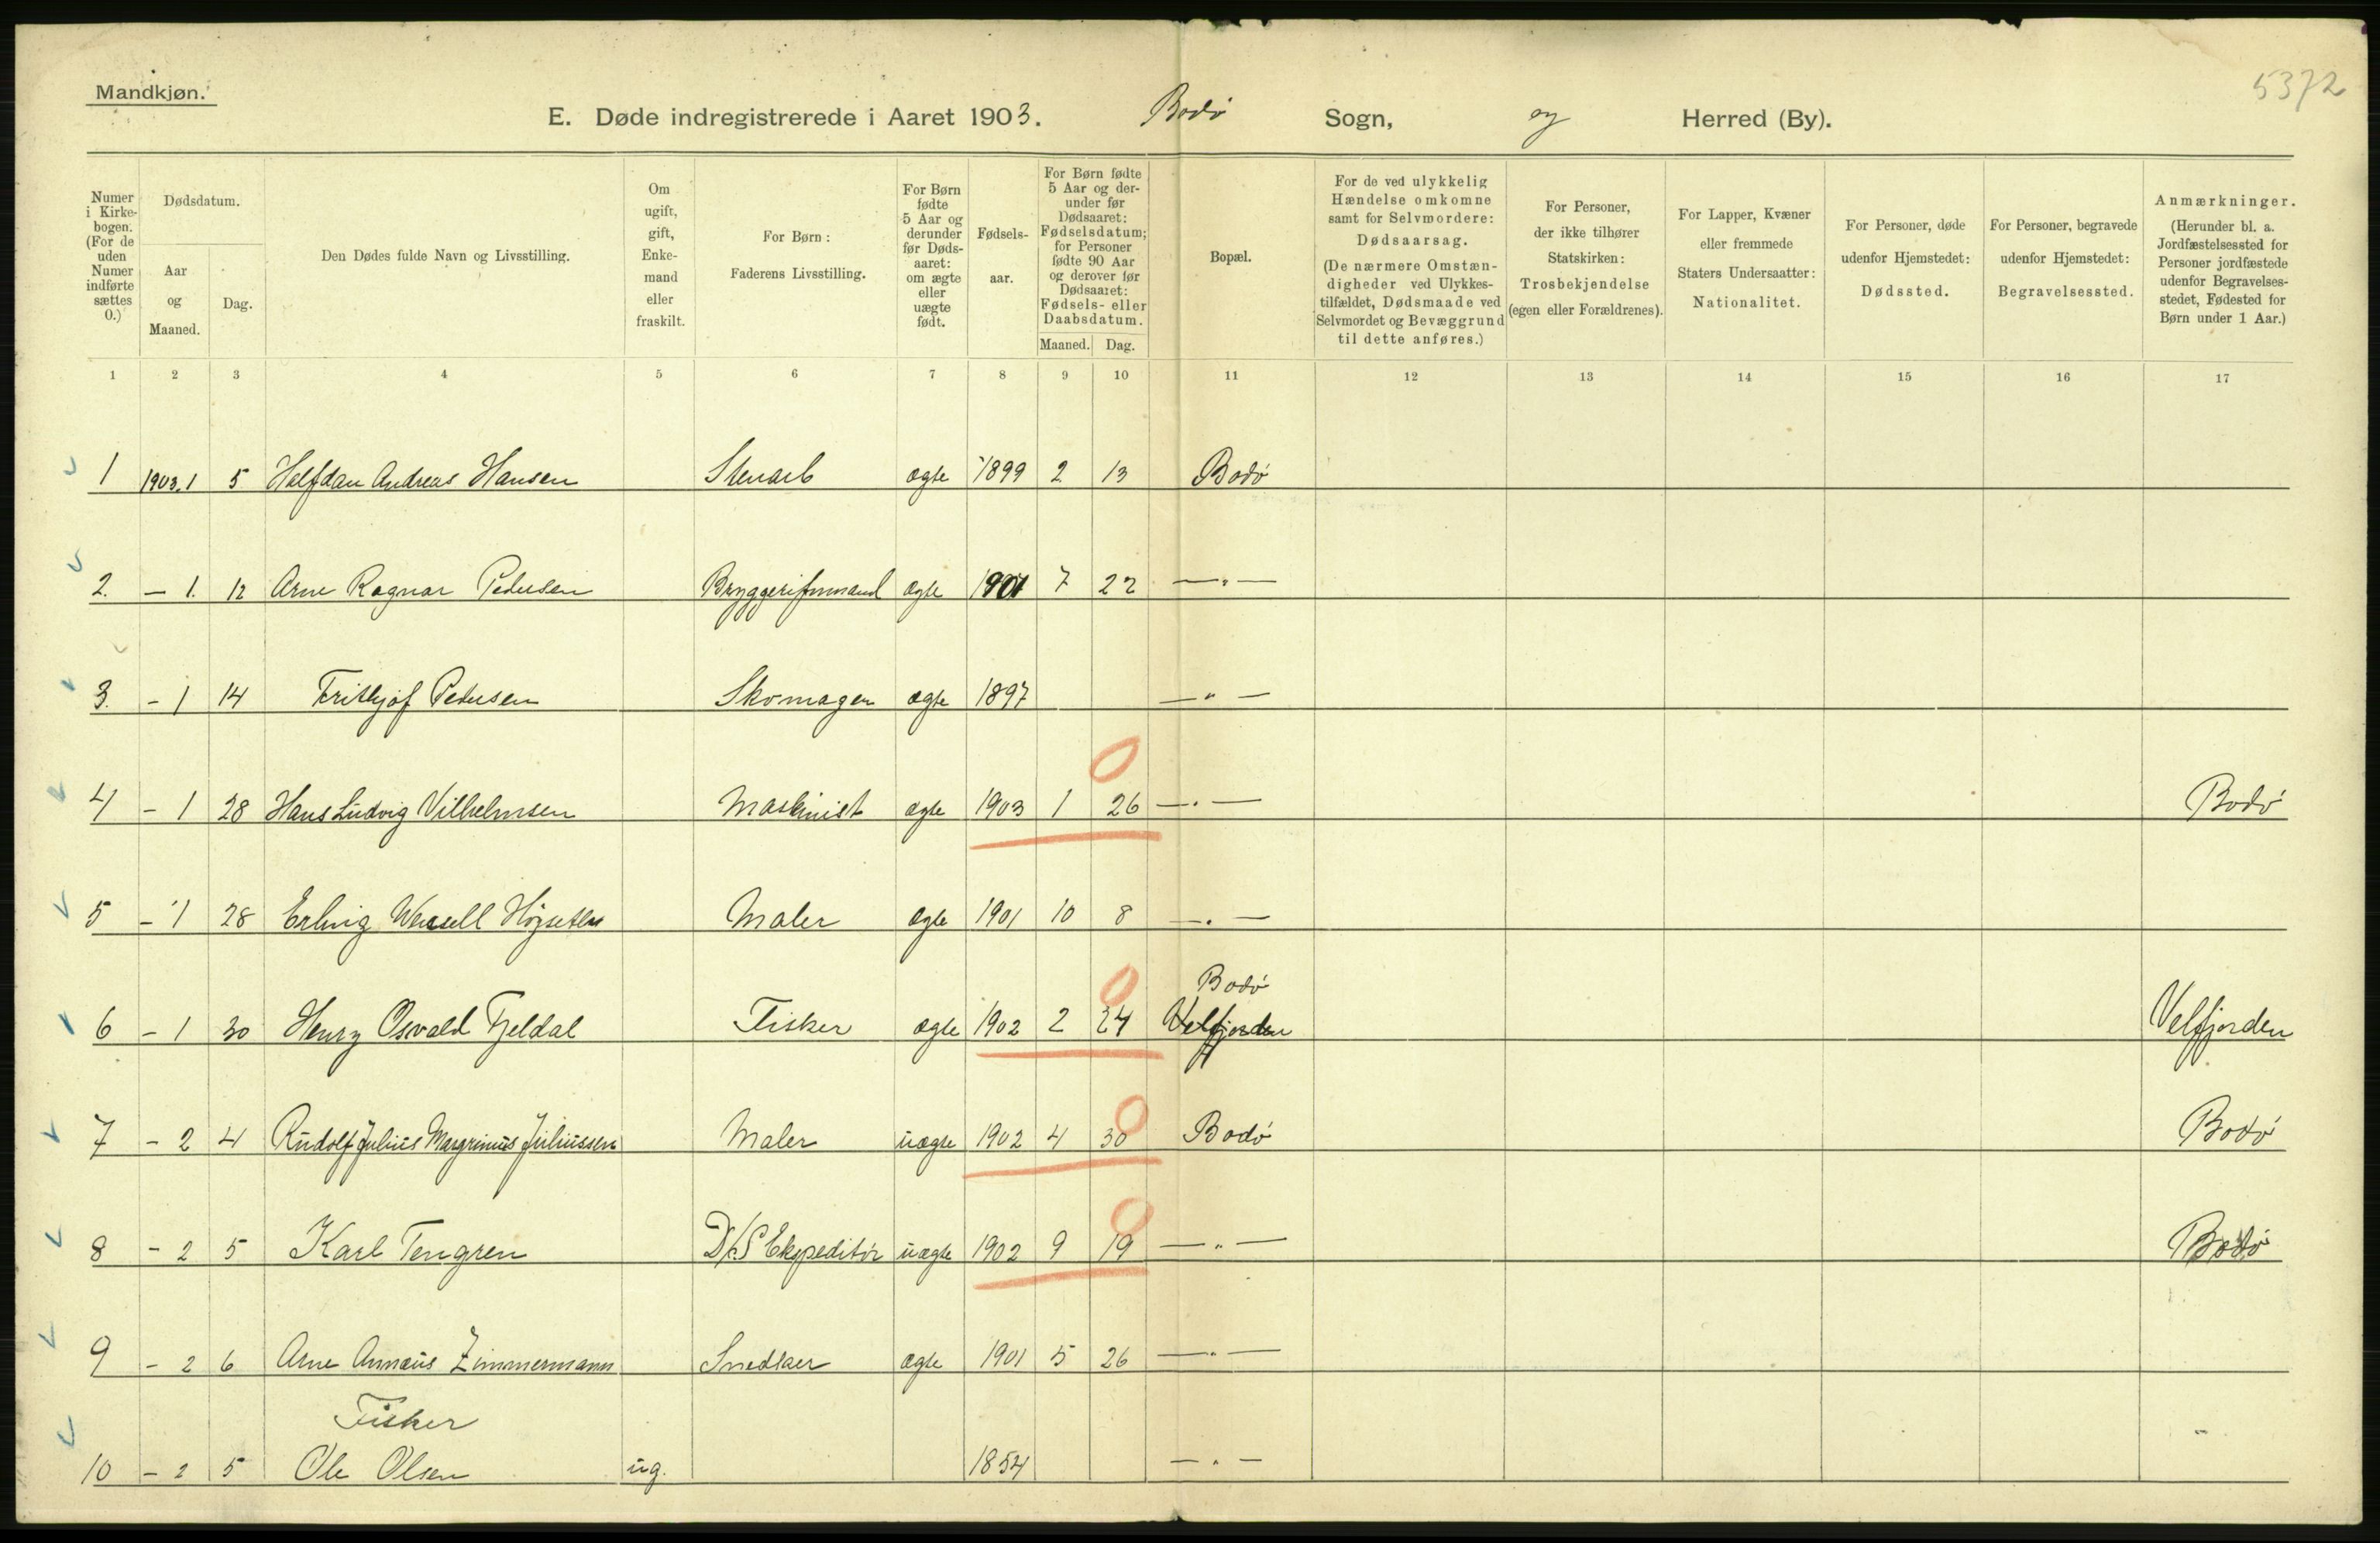 Mandkjøn.
5372
E. Døde indregistrerede i Aaret 1903. Bodø Sogn, og Herred (By).
Numer i Kirke-bogen. (For de uden Numer indførte sættes 0.)
Dødsdatum.
Aar og Maaned.
Dag.
Den Dødes fulde Navn og Livsstilling.
Om ugift, gift, Enke-mand eller fraskilt.
For Børn: Faderens Livsstilling.
For Børn fødte 5 Aar og derunder før Døds-aaret: om ægte eller uægte født.
Fødsels-aar.
For Børn fødte 5 Aar og der-under før Dødsaaret: Fødselsdatum; for Personer fødte 90 Aar og derover før Dødsaaret: Fødsels- eller Daabsdatum.
Maaned. Dag.
Bopæl.
For de ved ulykkelig Hændelse omkomne samt for Selvmordere: Dødsaarsag. (De nærmere Omstæn-digheder ved Ulykkes-tilfældet, Dødsmaade ved Selvmordet og Bevæggrund til dette anføres.)
For Personer, der ikke tilhører Statskirken: Trosbekjendelse (egen eller Forældrenes).
For Lapper, Kvæner eller fremmede Staters Undersaatter: Nationalitet.
For Personer, døde udenfor Hjemstedet: Dødssted.
For Personer, begravede udenfor Hjemstedet: Begravelsessted.
Anmærkninger. (Herunder bl. a. Jordfæstelsessted for Personer jordfæstede udenfor Begravelses-stedet, Fødested for Børn under 1 Aar.)
1 2 3 4 5 6 7 8 9 10 11 12 13 14 15 16 17
1 1903.1 5 Halfdan Andreas Hansen Stenarb ægte 1899 2 13 Bodø
2. – 1. 12 Arne Ragnar Pedersen ægte 1901 7 22 —"—
3. – 1 14 Frithjof Pedersen Skomager ægte 1897 —"—
0
4 – 1 28 Hans Ludvig Vilhelmsen Maskinist ægte 1903 1 26 —"— Bodø
5 – 1 28 Erling Maler ægte 1901 10 8 —"—
0 Bodø
6 – 1 30 Henry Osvald Fjeldal Fisker ægte 1902 2 24 Velfjorden Velfjorden
0
7 – 2 4 Rudolf Julius Margrinius Juliussen Maler uægte 1902 4 30 Bodø Bodø
0
8 – 2 5 Karl Tengren D/S Ekspeditør uægte 1902 9 19 —"— Bodø
9 – 2 6 Arne Annæus Zimmermann Snedker ægte 1901 5 26 —"—
Fisker
10 – 2 5 Ole Olsen ug. 1854 —"—